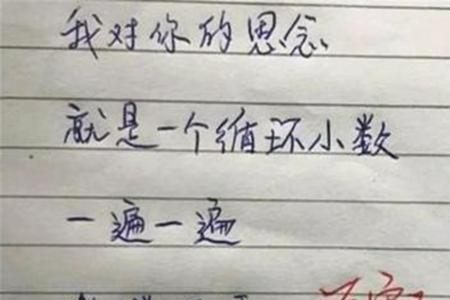 我对你的思念
就是一个循环小数
一遍一遍